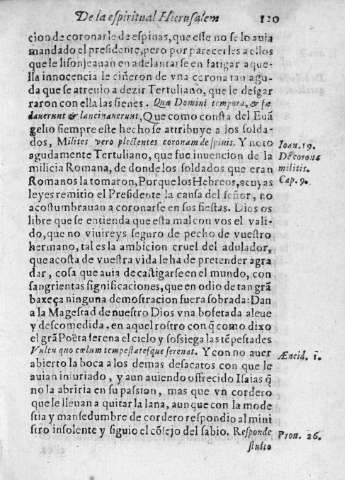 De la espiritual Hierusalem 120
cion de coronarle de espinas, que este no se lo auia
mandado el presidente, pero por parecerles a ellos
que le lisonjeauan en adelantarse en fatigar aque-
lla innocencia le ciñeron de vna corona tan agu-
da que se atreuio a dezir Tertuliano, que le desgar
raron con ella las sienes. Qua Domini tempora, & fœ
danerunt & lancinauerunt, Que como consta del Euã
gelio siempre este hecho se atribuye a los solda-
dos, Milites vero plectentes coronam de spinis. Y noto
agudamente Tertuliano, que fue inuencion de la
milicia Romana, de donde los soldados que eran
Romanos la tomaron, Porque los Hebreos, a cuyas
leyes remitio el Presidente la causa del señor, no
acostumbrauan a coronarse en sus fiestas. Dios os
libre que se entienda que esta mal con vos el vali-
do, que no viuireys seguro de pecho de vuestro
hermano, tal es la ambicion cruel del adulador,
que a costa de vuestra vida le ha de pretender agra
dar, cosa que auia de castigarse en el mundo, con
sangrientas significaciones, que en odio de tan grã
baxeça ninguna demostracion fuera sobrada: Dan
a la Magestad de nuestro Dios vna bofetada aleue
y descomedida, en aquel rostro con q̃ como dixo
el grã Poeta serena el cielo y sossiega las tẽpestades
Vultu quo cœlum tempestatesque serenat. Y con no auer
abierto la boca a los demas desacatos con que le
auian injuriado, y aun auiendo ofrecido Isaias q̃
no la abriria en su passion, mas que vn cordero
que le lleuan a quitar la lana, aunque con la mode
stia y mansedumbre de cordero respondio al mini
stro insolente y siguio el cõsejo del sabio. Responde
stulto
Ioan. 19.
De corona
militis.
Cap. 9.
Æneid. 1.
Prou. 26.